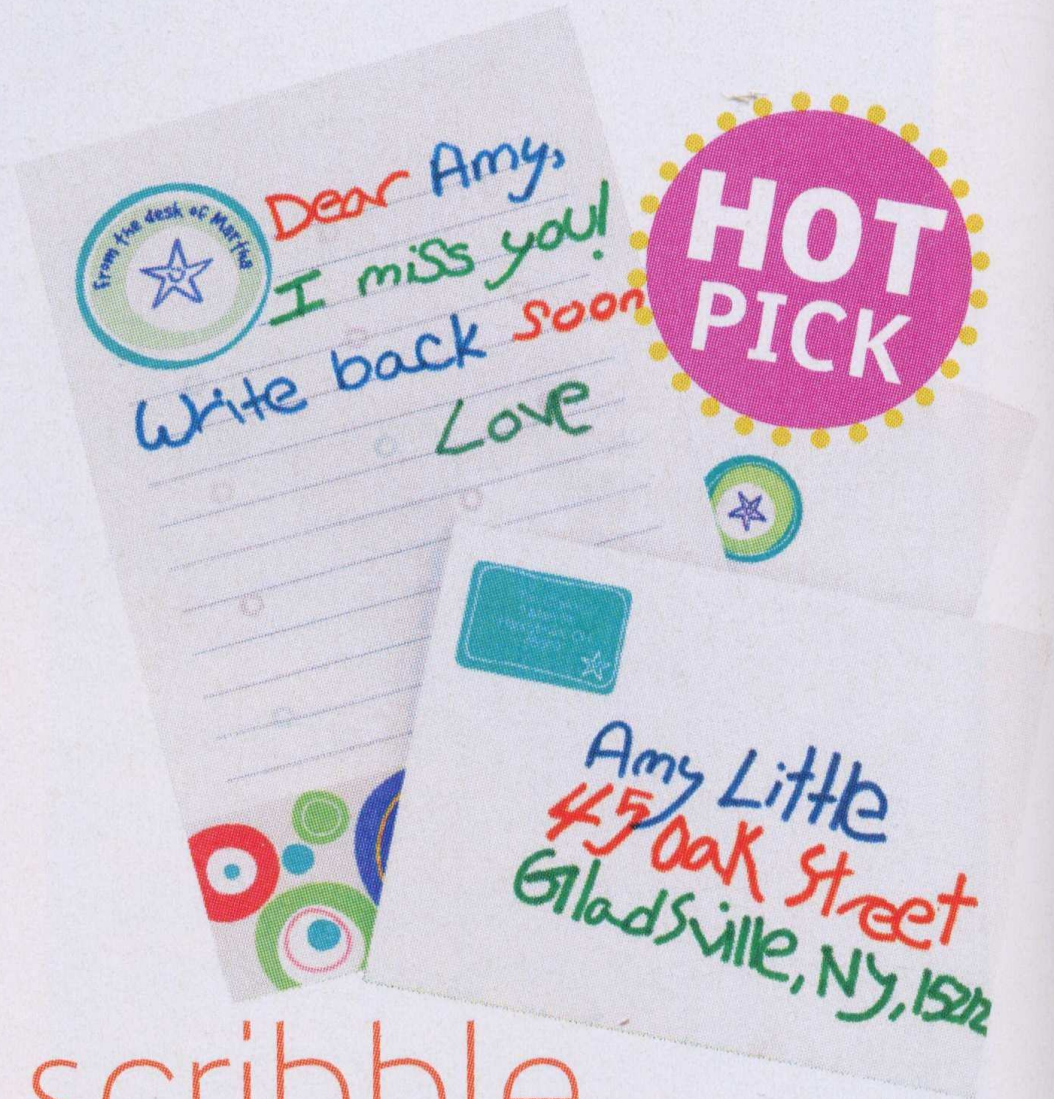 from the desk of Martha
Dear Amy,
I miss you!
Write back soon
Love
HOT
PICK
Amy Little
45 Oak Street
Gladsville, NY, 15212
scribble